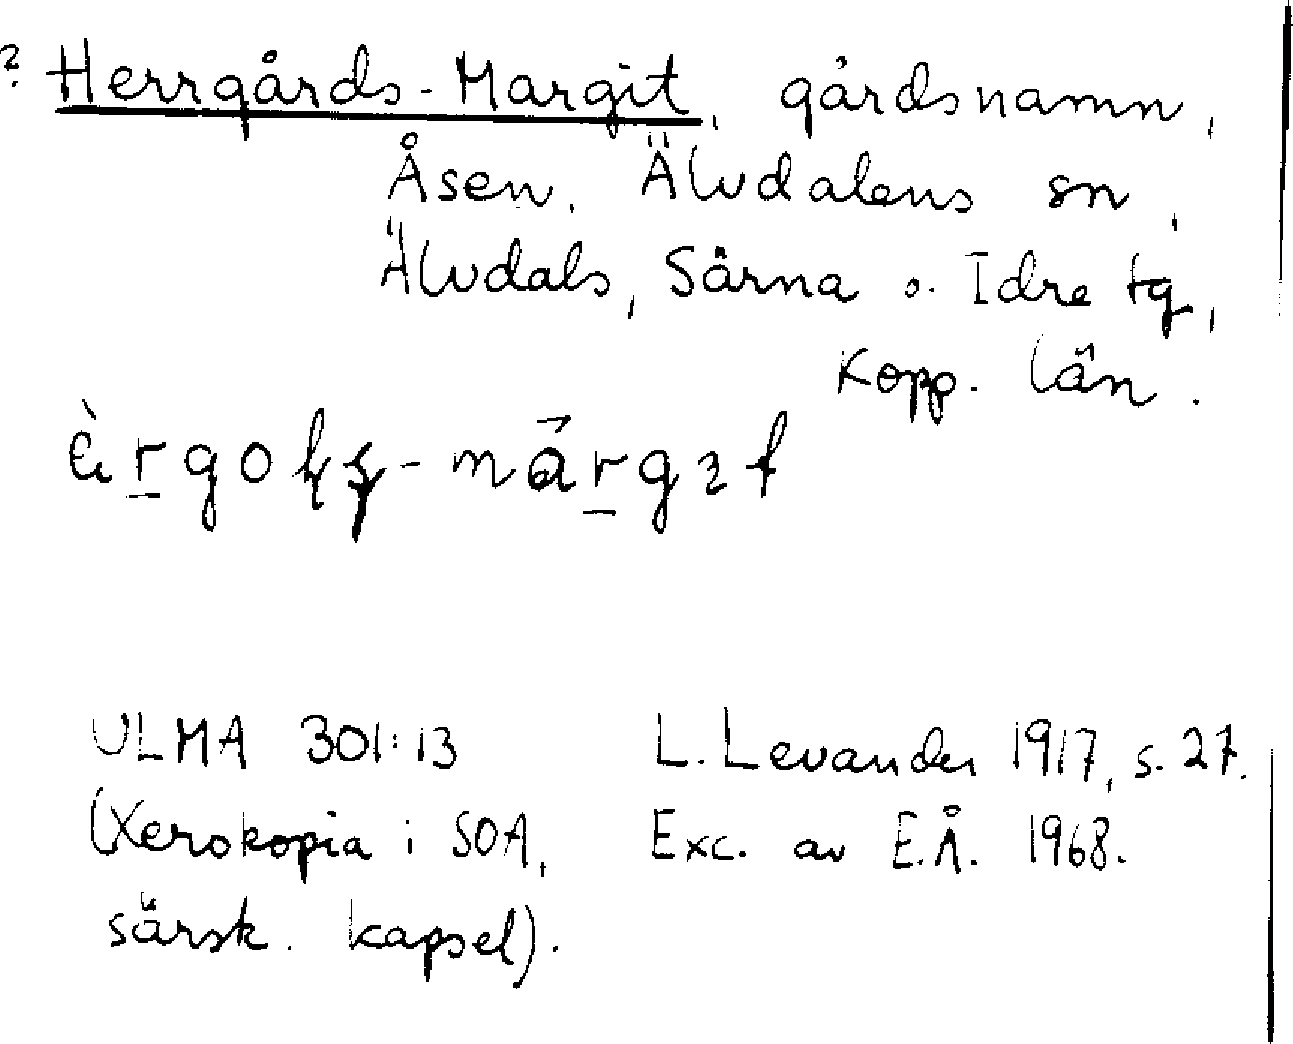 ? Herrgårds-Margit, gårdsnamn,
Åsen, Älvdalens sn,
Älvdals, Särna o. Idre tg,
Kopp. län.
ULMA 301:13 L. Levander 1917, s. 27.
(Xerokopia i SOA, Exc. av E.Å. 1968.
särsk. kapsel).